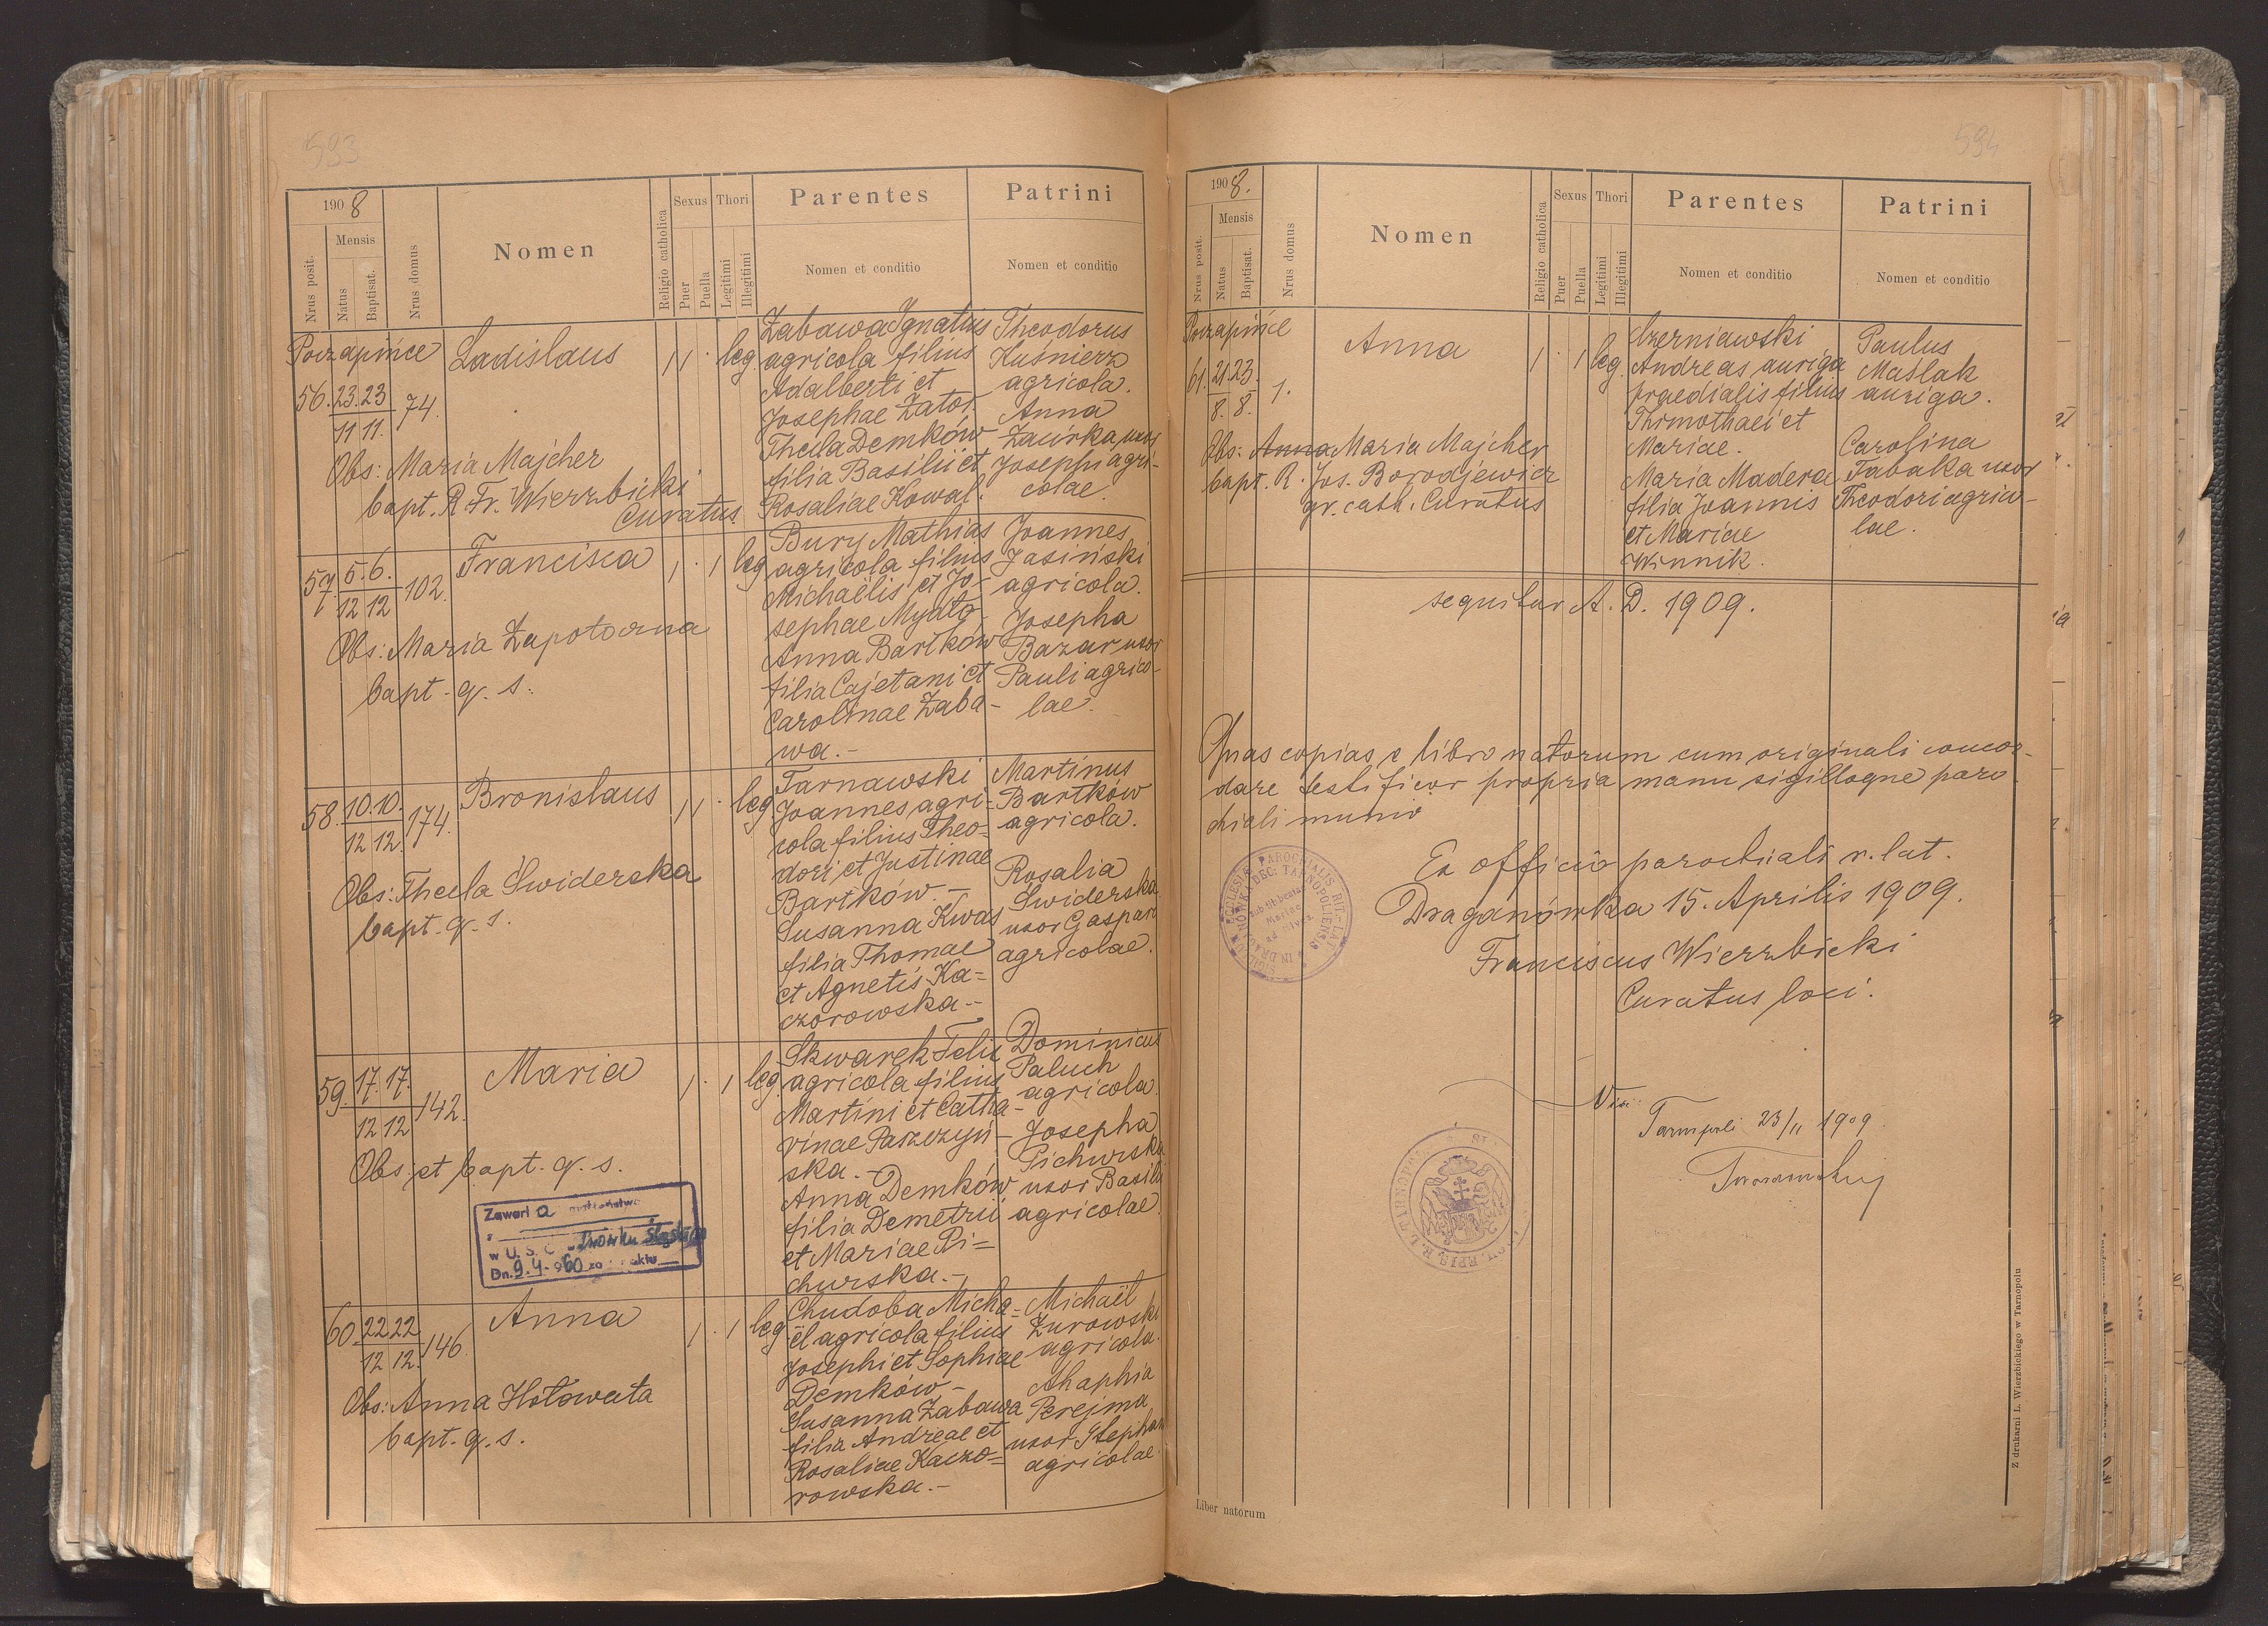 593
1908
Mensis
Nrus posit.
Natus
Baptisat.
Nrus domus
Nomen
Religio catholica
Sexus
Puer
Puella
Thori
Legitimi
Illegitimi
Parentes
Nomen et conditio
Patrini
Nomen et conditio
Poczapińce
56. 23. 23 74.
11 11.
Ladislaus
1 1 . leg.
Obs: Maria Majcher
bapt. R. Fr. Wierzbicki
Curatus
Zabawa Ignatius
agricola filius
Adalberti et
Josephae Zator.
Thecla Demków
filia Basilii et
Rosaliae Kowal.
Theodorus
Kuśnierz
agricola.
Anna
Zacirka, uxor
Josephi agri-
colae.
57. 5. 6. 102.
12 12
Francisca
1 . 1 leg
Obs: Maria Zapotoczna
bapt. q. s.
Bury Mathias
agricola filius
Michaëlis et Jo-
sephae Mydło
Anna Bartków
filia Cajetani et
Carolinae Zaba-
wa.-
Joannes
Jasiński
agricola.
Josepha
Bazar uxor
Pauli agrico-
lae.
58. 10. 10. 174.
12 12.
Bronislaus
1 1 . leg
Obs: Thecla Swiderska
bapt. q. s.
Tarnawski
Joannes agri-
cola filius Theo-
dori et Justinae
Bartków.-
Susanna Kwas
filia Thomae
et Agnetis Ka=
czorowska.-
Martinus
Bartków
agricola.
Rosalia
Swiderska
uxor Gaspari
agricolae.
59. 17. 17. 142.
12 12
Maria
1 . 1 leg.
Obs. et bapt. q. s.
Zawarł a małżeństwo
w U. S. C. Lwówku Śląskim
Dn. 9. 4. 960 za aktu
Skwarek Felix
agricola filius
Martini et Catha-
rinae Paszczyń-
ska.-
Anna Demków
filia Demetrii
et Mariae Pi=
churska.-
Dominicus
Paluch
agricola
Josepha
Pichurska
uxor Basilii
agricolae
60. 22 22 146
12 12.
Anna
1 . 1 leg
Obs: Anna Hotowata
bapt. q. s.
Chudoba Micha=
ël agricola filius
Josephi et Sophiae
Demków-
Susanna Zabawa
filia Andreae et
Rosaliae Kaczo=
rowska.-
Michaël
Żurowski
agricola.
Ahaphia
Perejma
uxor Stephani
agricolae
594
1908.
Mensis
Nrus posit.
Natus
Baptisat.
Nrus domus
Nomen
Religio catholica
Sexus
Puer
Puella
Thori
Legitimi
Illegitimi
Parentes
Nomen et conditio
Patrini
Nomen et conditio
Poczapińce
61. 21. 23. 1.
8. 8.
Anna
1 . 1 leg.
Obs: Anna Maria Majcher
bapt. R. Jos. Borodjewicz
gr. cath. Curatus
Czerniawski
Andreas auriga
praedialis filius
Thimothaei et
Mariae.
Maria Madera
filia Joannis
et Mariae
Winnik.
Paulus
Maślak
auriga.
Carolina
Tabaka uxor
Theodori agrico-
lae.
sequitur A. D. 1909.
Quas copias e libro natorum cum originali concor-
dare testificor propria manu sigilloque paro-
chiali munio
Ex officio parochiali r. lat.
Draganówka 15. Aprilis 1909.
Franciscus Wierzbicki
Curatus loci.
Tarnopoli 23/11 1909
Liber natorum
Z drukarni L. Wierzbickiego w Tarnopolu